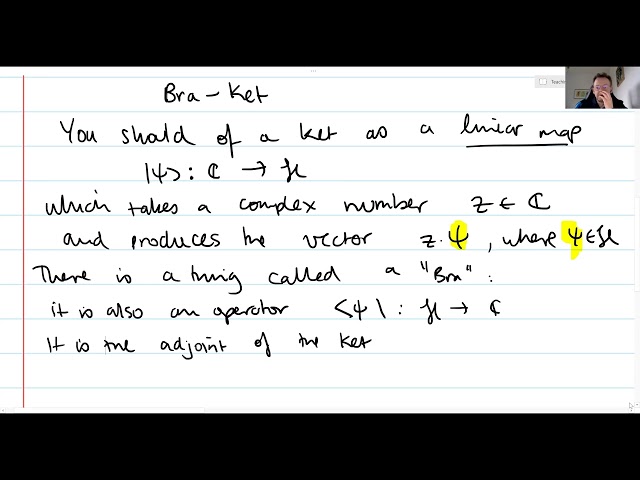 Bra-Ket
You should of a ket as a linear map
|ψ> : ℂ → ℋ
which takes a complex number z ∈ ℂ
and produces the vector z·ψ, where ψ∈ℋ
There is a thing called a "Bra":
it is also an operator <ψ| : ℋ → ℂ
It is the adjoint of the ket